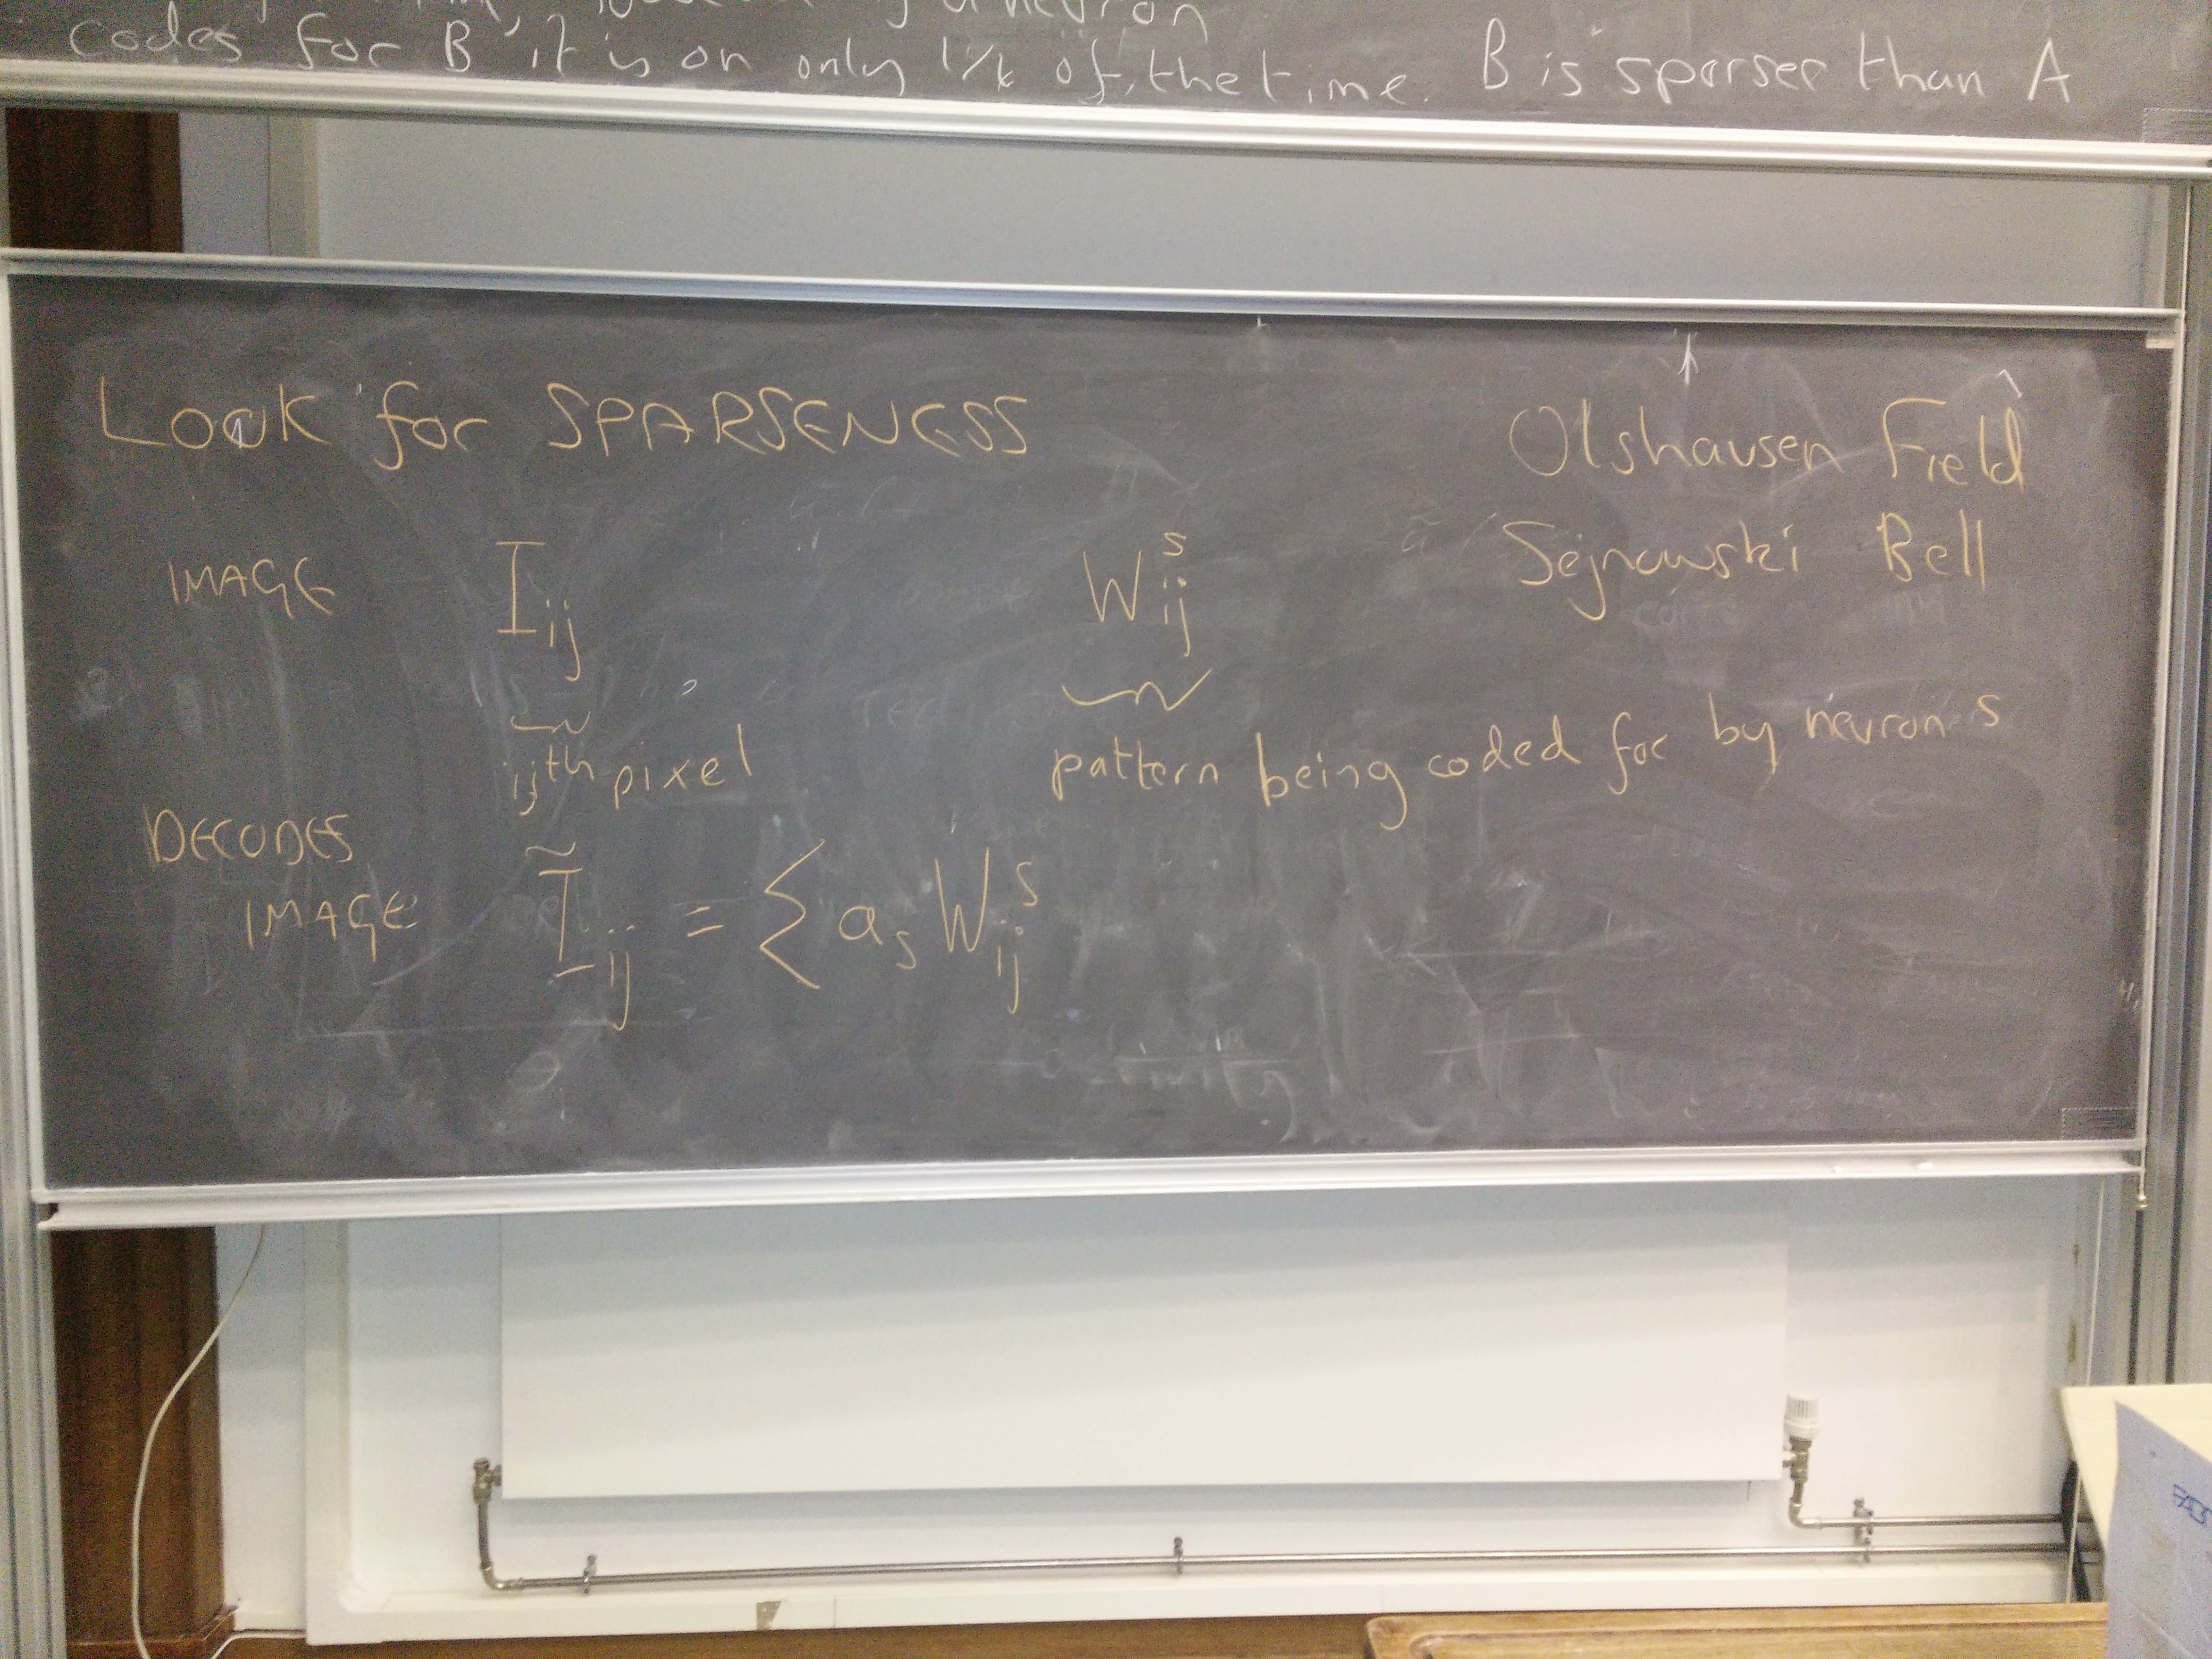 a neuron
codes for B it is on only 1/k of the time. B is sparser than A
Look for SPARSENESS
Olshausen Field
Sejnowski Bell
IMAGE I_ij W^s_ij
ij^th pixel pattern being coded for by neuron s
DECODES
IMAGE Ĩ_ij = Σ a_s W^s_ij